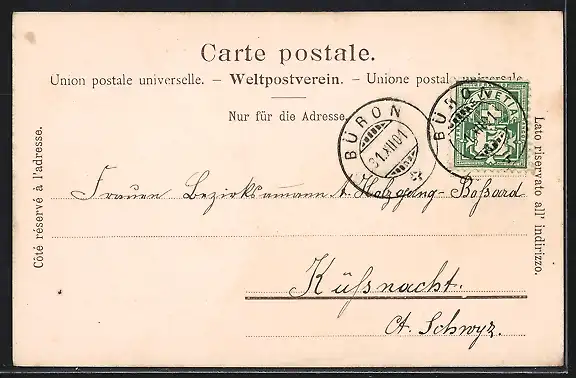 Carte postale.
Union postale universelle. – Weltpostverein. – Unione postale universale
Nur für die Adresse.
BÜRON
31.XII.01
BÜRO
HELVETIA
Côté réservé à l'adresse.
Lato riservato all' indirizzo.
Frauen Bezirksammann A. Holzgang-Boßard
Küßnacht.
Ct. Schwyz.